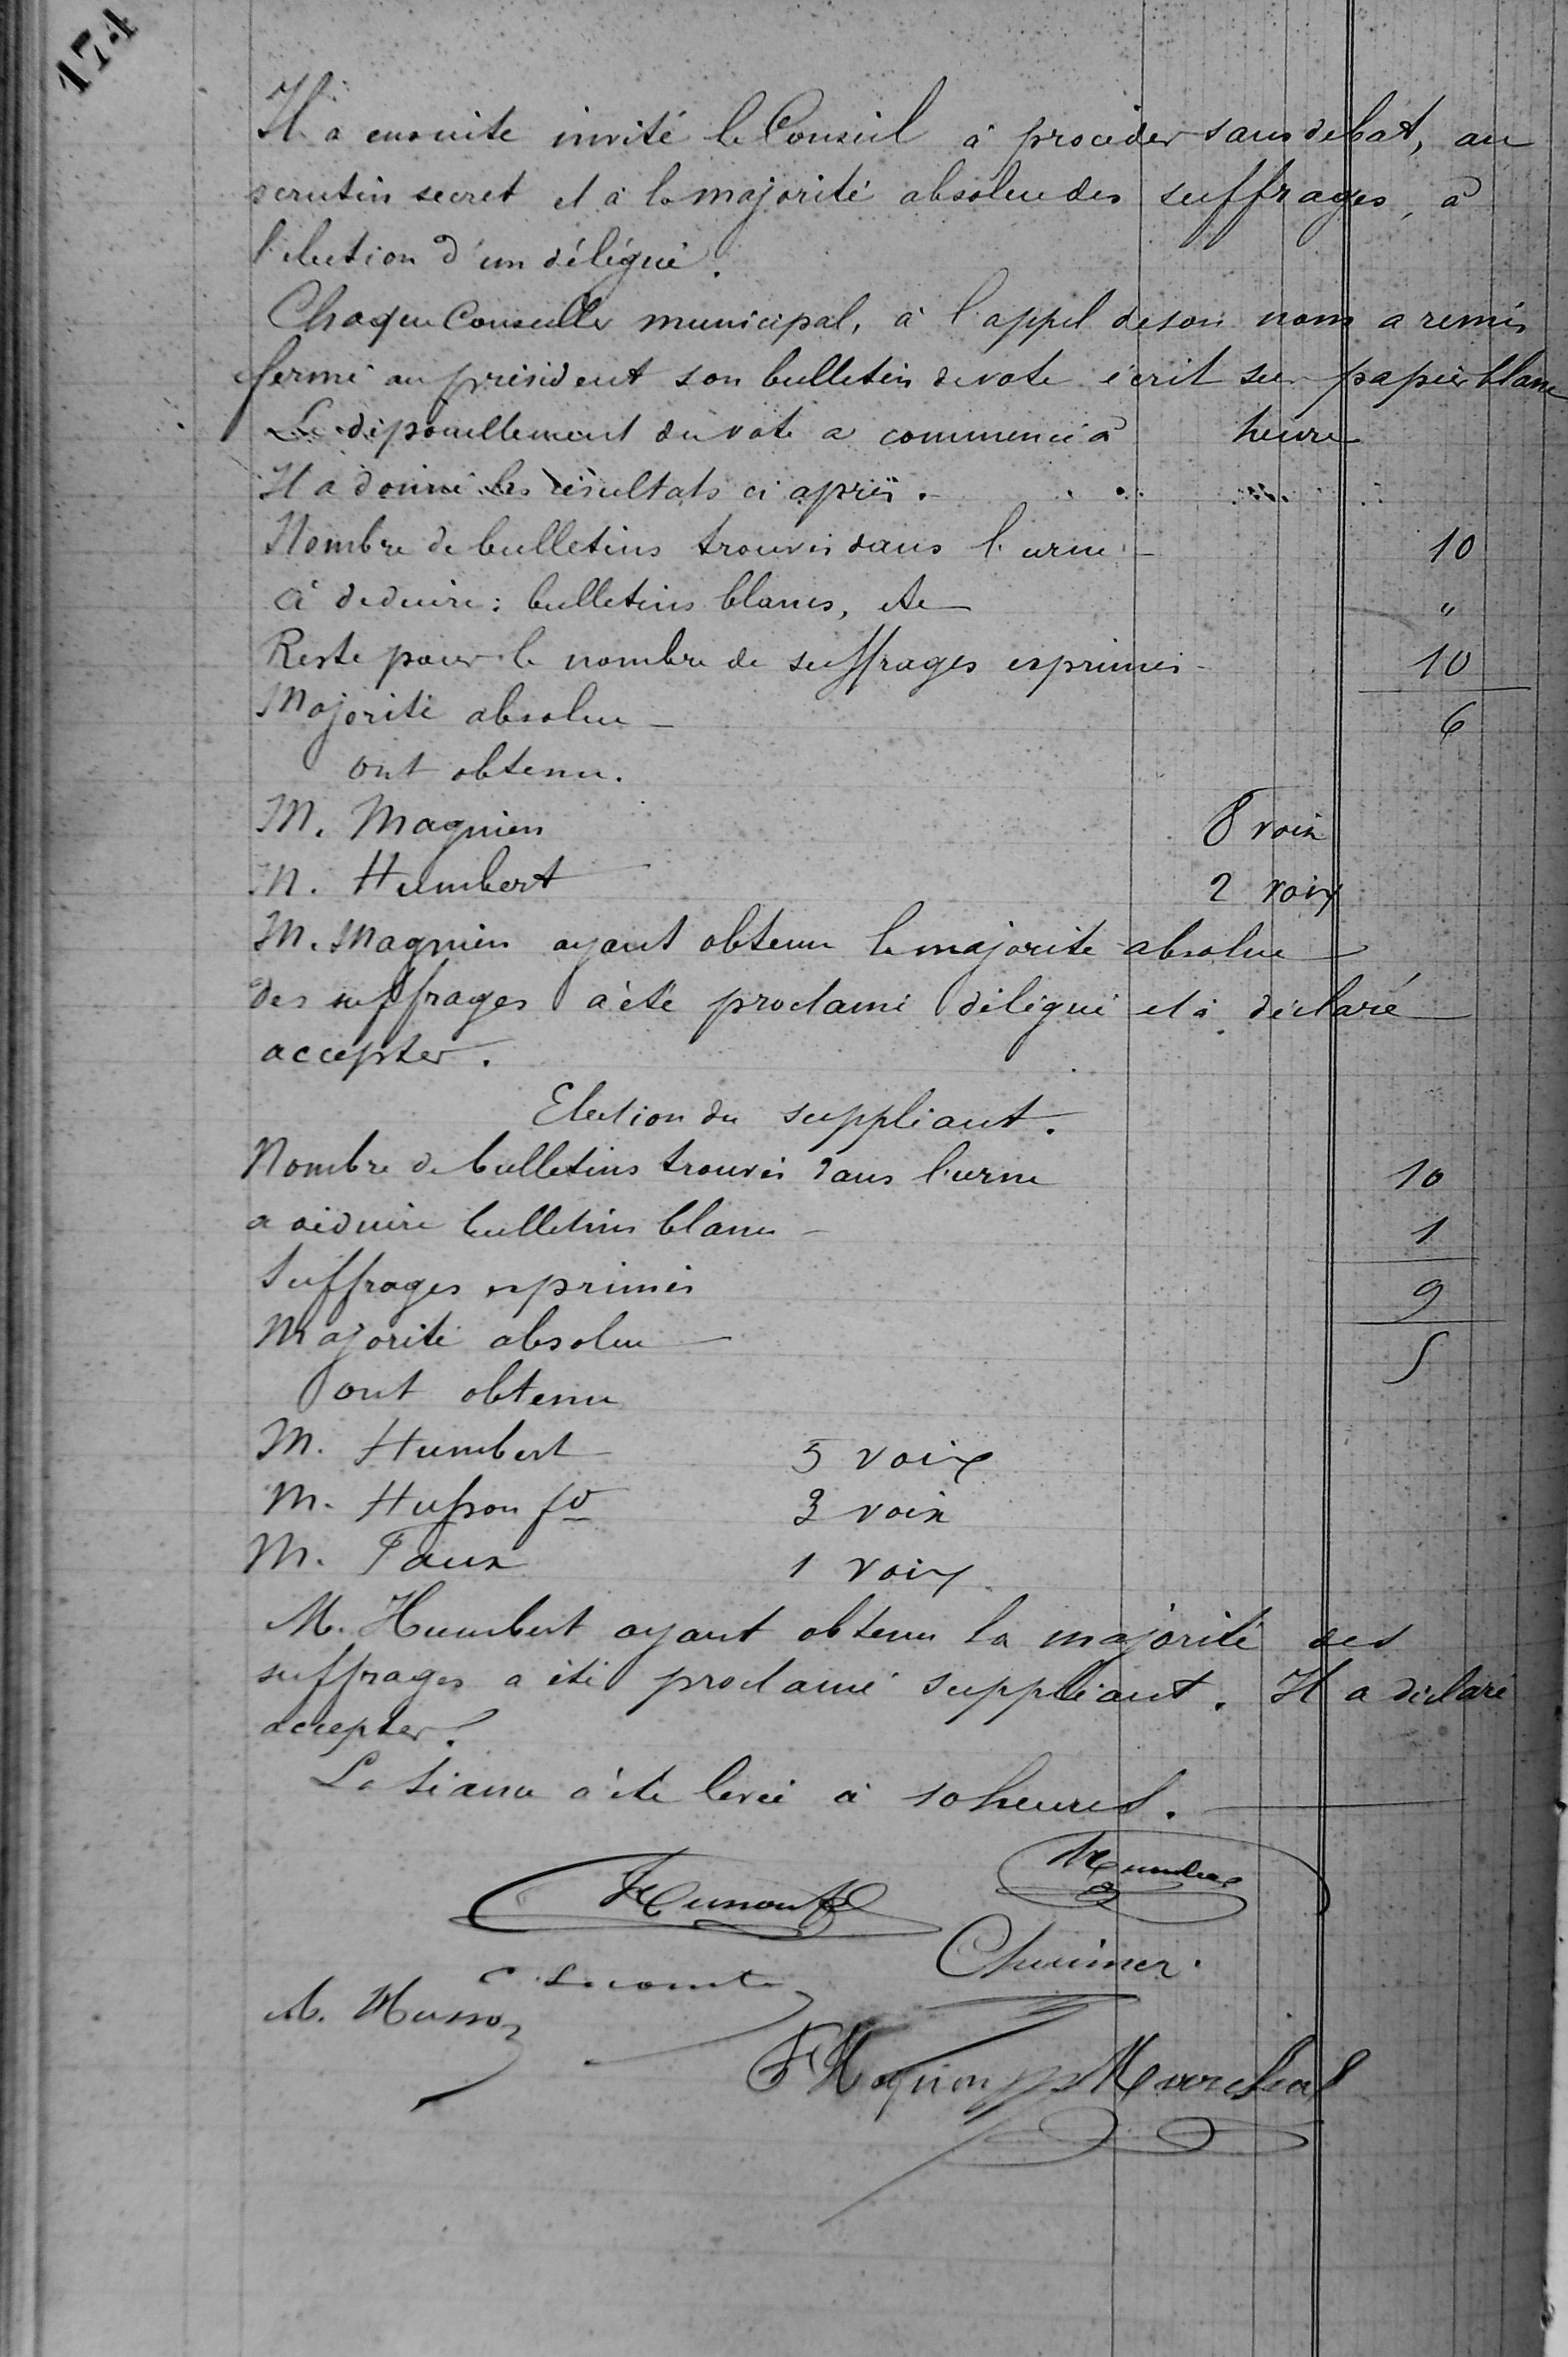 174
Il a ensuite invité le Conseil à procéder sans debat, au
scrutin secret et à la majorité absolue des suffrages, à
l'election d'un délégué.
Chaque Conseiller municipal, à l'appel de son nom a remis
fermé au président son bulletin de vote écrit sur papier blanc
Le dépouillement du vote a commencé à heure
Il a donné les résultats ci après.
Nombre de bulletins trouvés dans l'urne 10
à deduire : bulletins blancs, etc "
Reste pour le nombre de suffrages exprimés 10
Majorité absolue 6
ont obtenu.
M. Magnien 8 voix
M. Humbert 2 voix
M. Magnien ayant obtenu la majorite absolue
des suffrages a été proclamé délégué et a déclaré
accepter.
Election du suppléant.
Nombre de bulletins trouvés dans l'urne 10
a déduire bulletins blancs 1
Suffrages exprimés 9
Majorité absolue 5
ont obtenu
M. Humbert 5 voix
M. Husson fd 3 voix
M. Faux 1 voix
M. Humbert ayant obtenu la majorité des
suffrages a été proclamé suppléant. Il a déclaré
accepter.
La séance a été levée à 10 heures.
C. Lecomte
M. Husson
Marchal